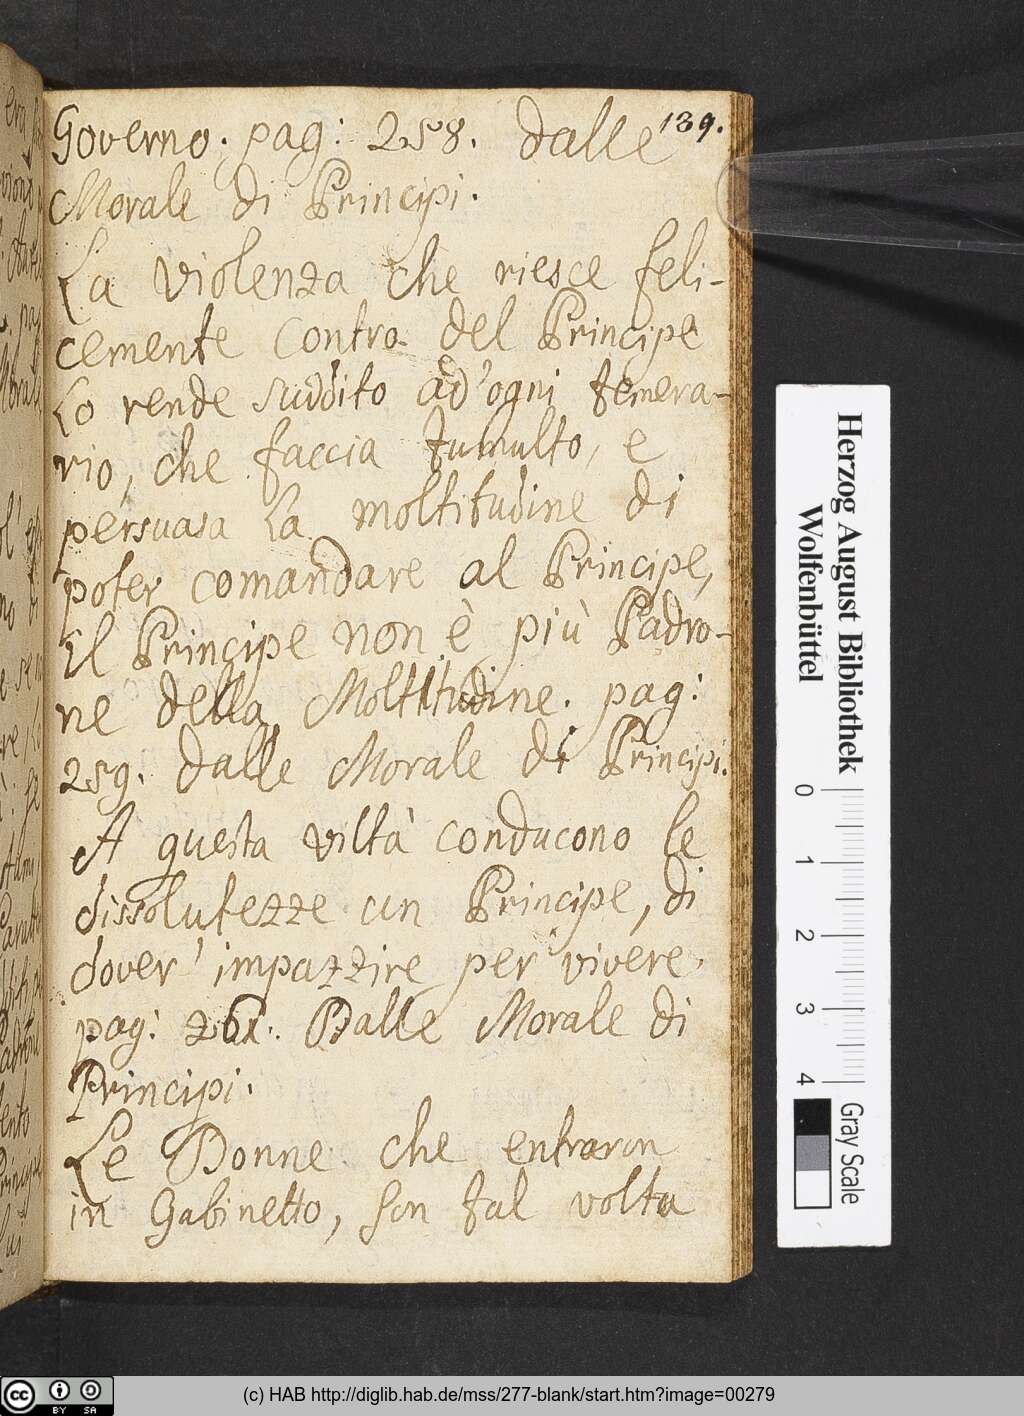 139.
Governo. pag: 258. dalle
Morale di Principi.
La violenza che riesce feli-
cemente contro del Principe
Lo rende suddito ad'ogni temera-
rio, che faccia tumulto, e
persuasa La moltitudine di
poter comandare al Principe,
il Principe non è più Padro-
ne della Moltitudine. pag:
259. dalle Morale di Principi.
A questa viltà conducono le
dissolutezze un Principe, di
dover' impazzire per vivere.
pag: 261. Dalle Morale di
Principi.
Le Donne che entraron
in Gabinetto, son tal volta
Herzog August Bibliothek
Wolfenbüttel
0 1 2 3 4
Gray Scale
(c) HAB http://diglib.hab.de/mss/277-blank/start.htm?image=00279
cc BY SA